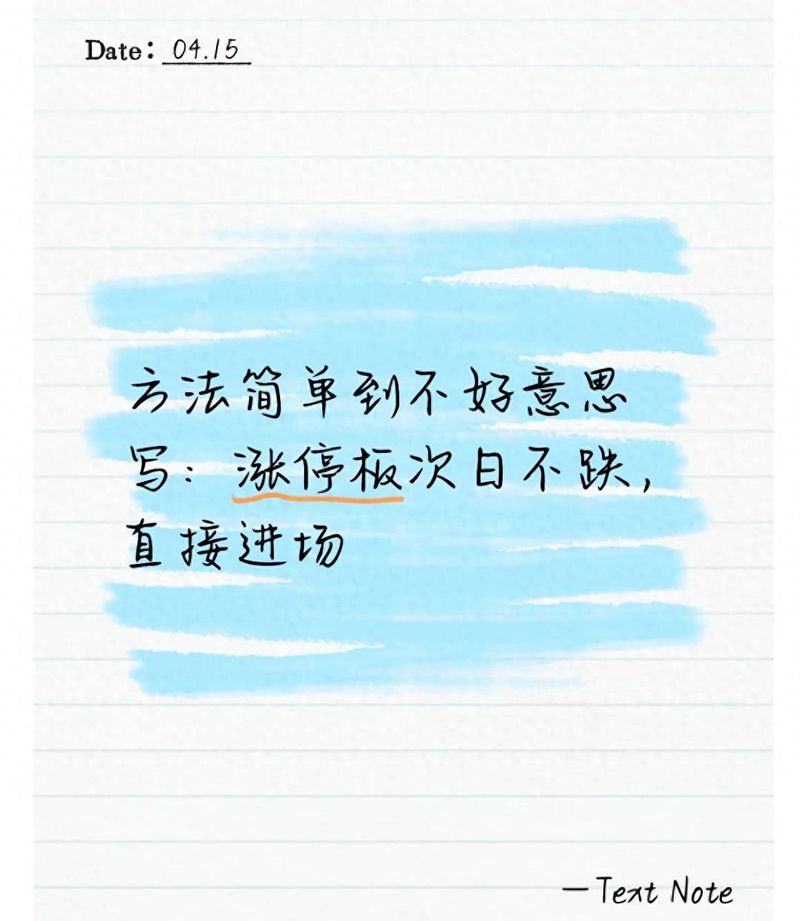 Date: 04.15
方法简单到不好意思
写：涨停板次日不跌，
直接进场
—Text Note